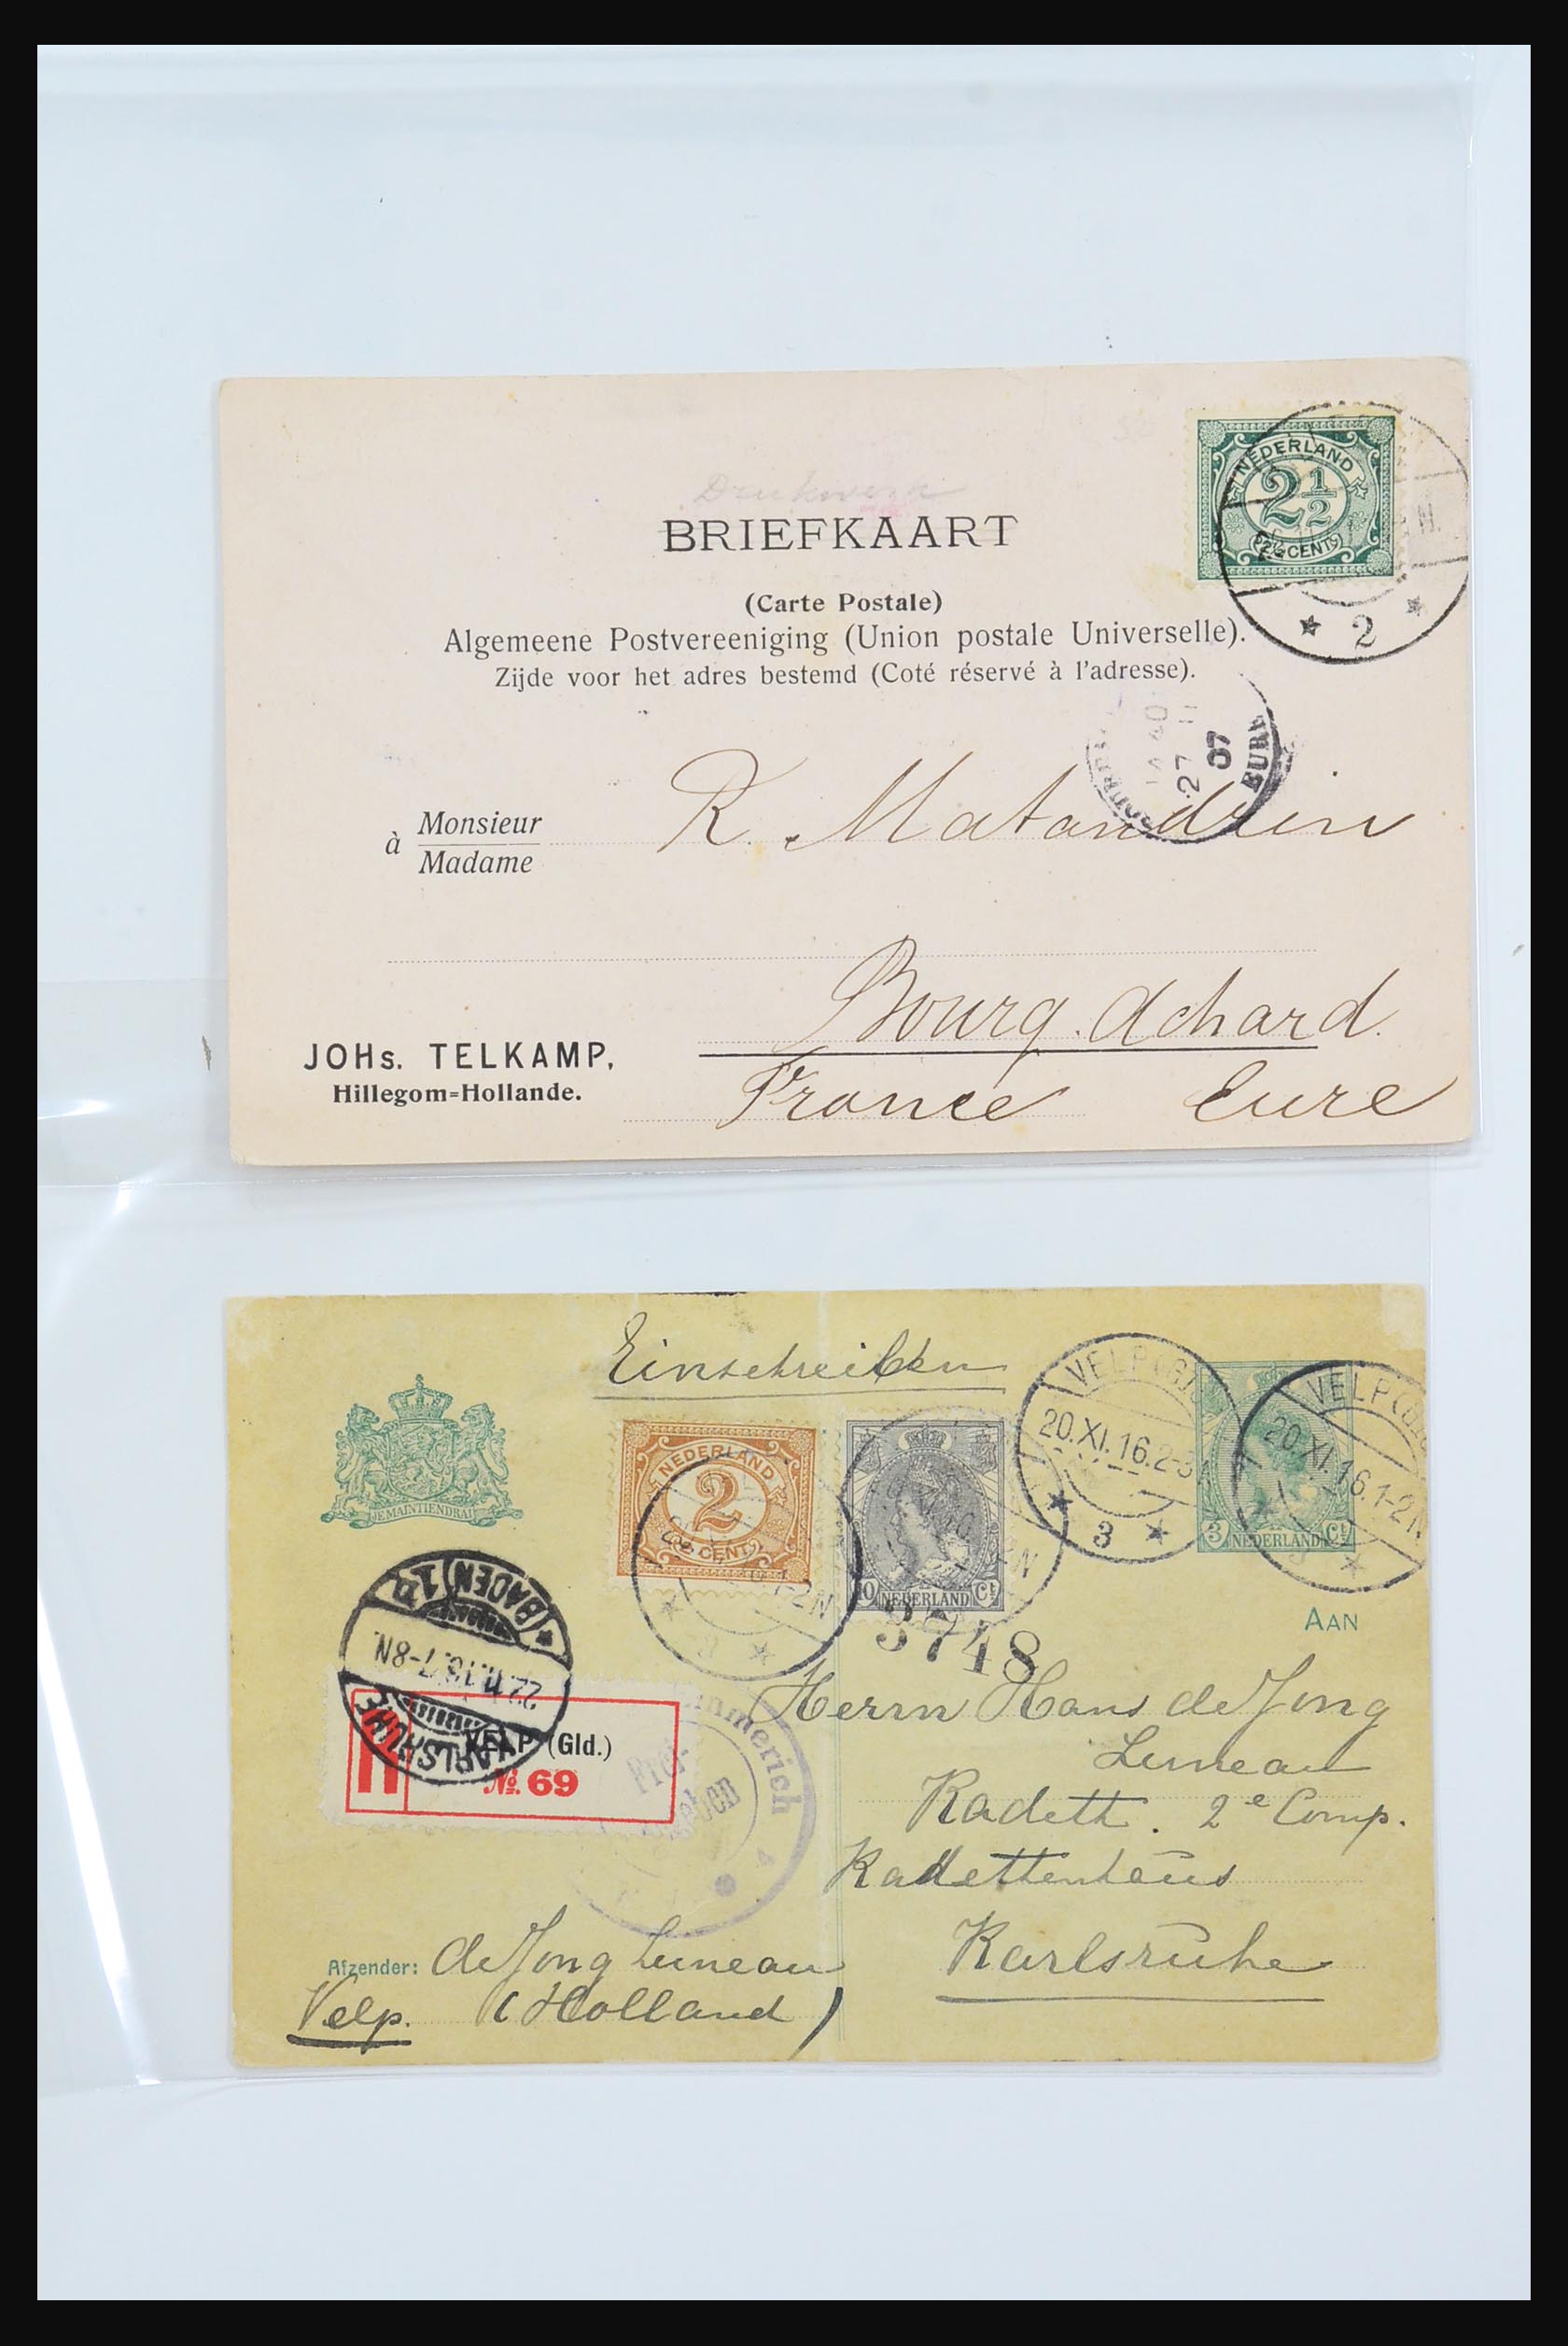 Drukwerk
BRIEFKAART
(Carte Postale)
Algemeene Postvereeniging (Union postale Universelle).
Zijde voor het adres bestemd (Coté réservé à l'adresse).
NEDERLAND
2 1/2
2½ CENT
2
27 11
07
EURE
à Monsieur
Madame
R. Matandrin
Bourg. Achard.
France Eure
JOHs. TELKAMP,
Hillegom=Hollande.
Einschreiben
JE MAINTIENDRAI
NEDERLAND
2
CENT
1-2N
10 NEDERLAND Ct
VELP (G
20.XI.16.2-3
3
VELP (G
20.XI.16.1-2N
3 NEDERLAND Ct
AAN
3748
KARLSRUHE
(BADEN) 1
22.11.16.7-8N.
R
VELP (Gld.)
No. 69
Emmerich
Herrn Hans de Jong
Luneau
Kadett. 2e Comp.
Kadettenhaus
Karlsruhe
Afzender: de Jong Luneau
Velp. (Holland)